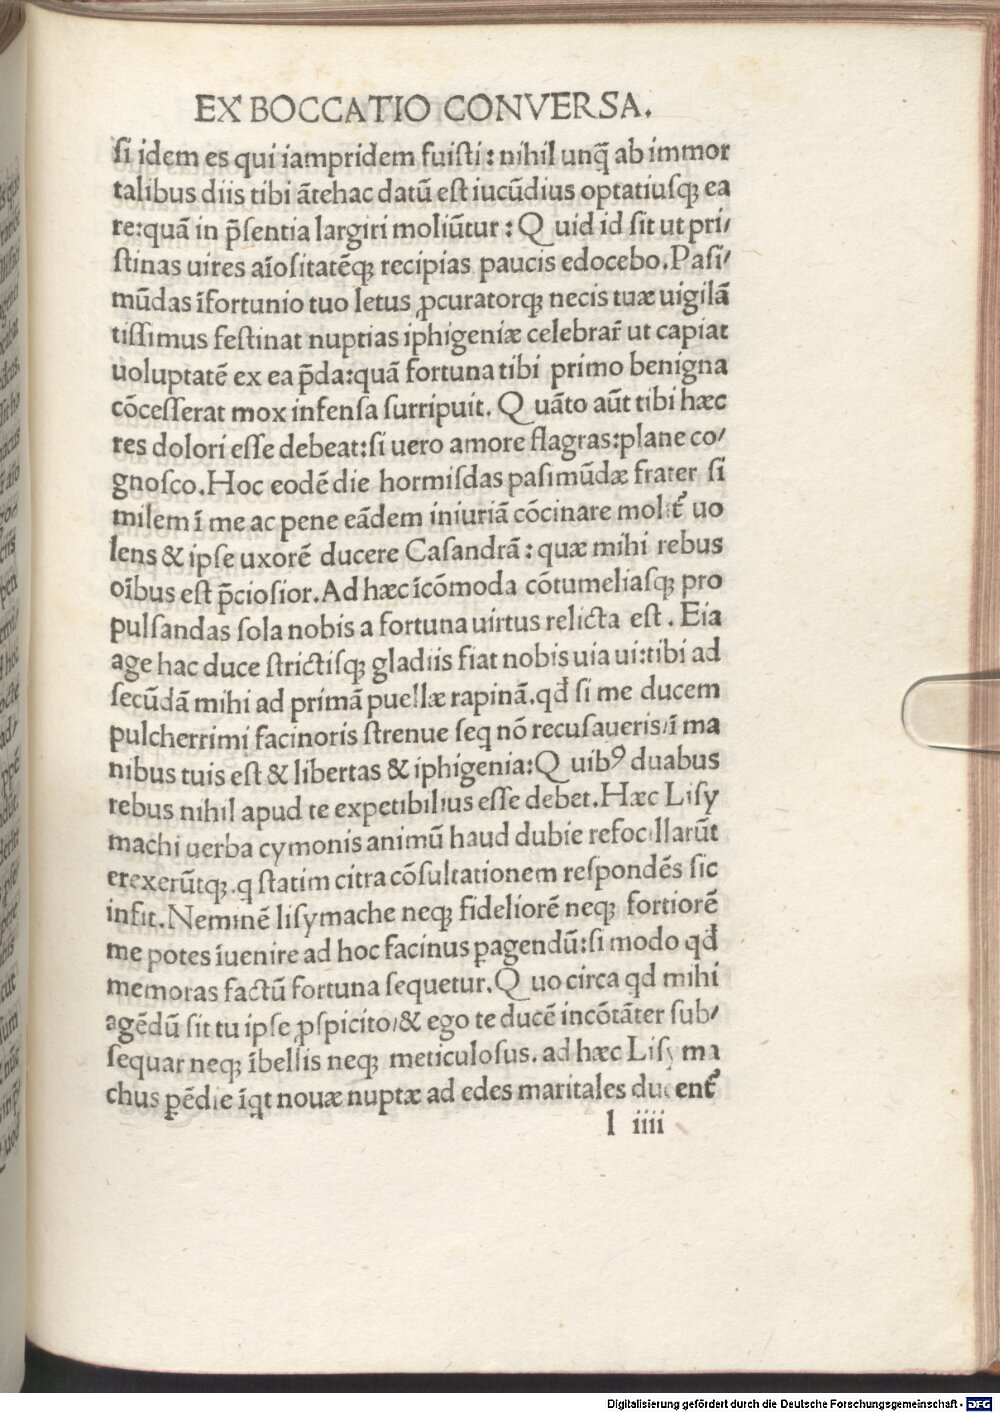 EX BOCCATIO CONVERSA.
ſi idem es qui iampridem fuiſti : nihil unq̃ ab immor
talibus diis tibi ãtehac datũ eſt iucũdius optatiuſqꝫ ea
re:quã in p̃ſentia largiri moliũtur : Q uid id ſit ut pri/
ſtinas uires aĩoſitatẽqꝫ recipias paucis edocebo.Paſi/
mũdas ĩfortunio tuo letus ꝓcuratorqꝫ necis tuæ uigilã
tiſſimus feſtinat nuptias iphigeniæ celebrar̃ ut capiat
uoluptatẽ ex ea p̃da:quã fortuna tibi primo benigna
cõceſſerat mox infenſa ſurripuit. Q uãto aũt tibi hæc
res dolori eſſe debeat:ſi uero amore flagras:plane co/
gnoſco.Hoc eodẽ die hormiſdas paſimũdæ frater ſi
milem ĩ me ac pene eãdem iniuriã cõcinare molit᷑ uo
lens & ipſe uxorẽ ducere Caſandrã : quæ mihi rebus
oĩbus eſt p̃cioſior.Ad hæc ĩcõmoda cõtumeliaſqꝫ pro
pulſandas ſola nobis a fortuna uirtus relicta eſt . Eia
age hac duce ſtrictiſqꝫ gladiis fiat nobis uia ui:tibi ad
ſecũdã mihi ad primã puellæ rapinã.qđ ſi me ducem
pulcherrimi facinoris ſtrenue ſeq nõ recuſaueris/ĩ ma
nibus tuis eſt & libertas & iphigenia:Q uibꝰ duabus
rebus nihil apud te expetibilius eſſe debet.Hæc Liſy
machi uerba cymonis animũ haud dubie refocillarũt
erexerũtqꝫ.q ſtatim citra cõſultationem reſpondẽs ſic
infit.Neminẽ liſymache neqꝫ fideliorẽ neqꝫ fortiorẽ
me potes ĩuenire ad hoc facinus ꝑagendũ:ſi modo qđ
memoras factũ fortuna ſequetur.Q uo circa qd mihi
agẽdũ ſit tu ipſe ꝓſpicito/& ego te ducẽ incõtãter ſub/
ſequar neqꝫ ĩbellis neqꝫ meticuloſus. ad hæc Liſy ma
chus ꝑẽdie ĩqt nouæ nuptæ ad edes maritales ducent᷑
l iiii
Digitalisierung gefördert durch die Deutsche Forschungsgemeinschaft - DFG